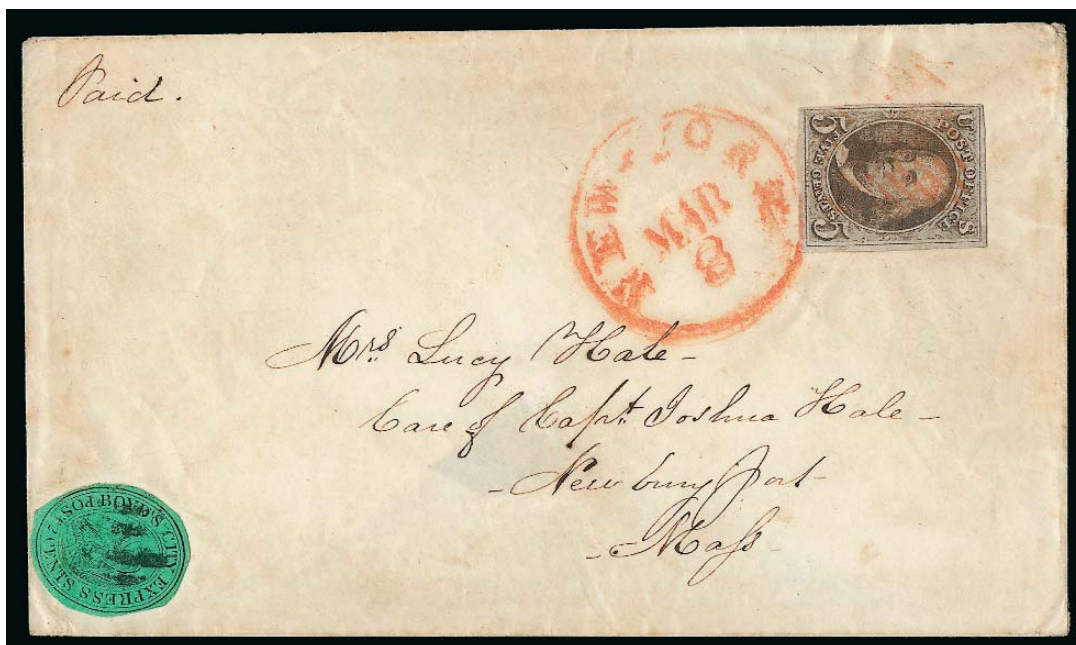 Paid.
NEW-YORK
MAR
8
POST OFFICE
U S
FIVE CENTS
5 5
Mrs Lucy Hale -
Care of Capt. Joshua Hale -
- Newburyport -
- Mass -
BOYD'S CITY EXPRESS POST 2 CENTS